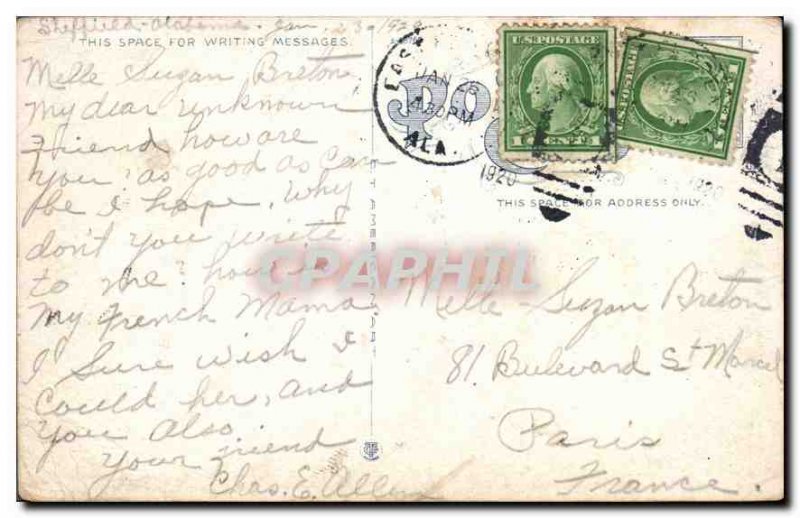 Sheffield-Alabama. Jan 23-1920
THIS SPACE FOR WRITING MESSAGES.
Melle Suzan Breton
My dear unknown
Friend how are
you as good as can
be I hope, Why
don't you write
to me? how is
My French Mama
I Sure wish I
Could her, and
You Also
Your friend
Chas. E. Allen
EAS
JAN 23
4 30 PM
ALA.
1920
U.S. POSTAGE
1 CENT 1
U.S. POSTAGE
1 CENT 1
1920
PO
THIS SPACE FOR ADDRESS ONLY.
CPAPHIL
Melle-Suzan Breton
81. Bulevard St Marcel
Paris
France.